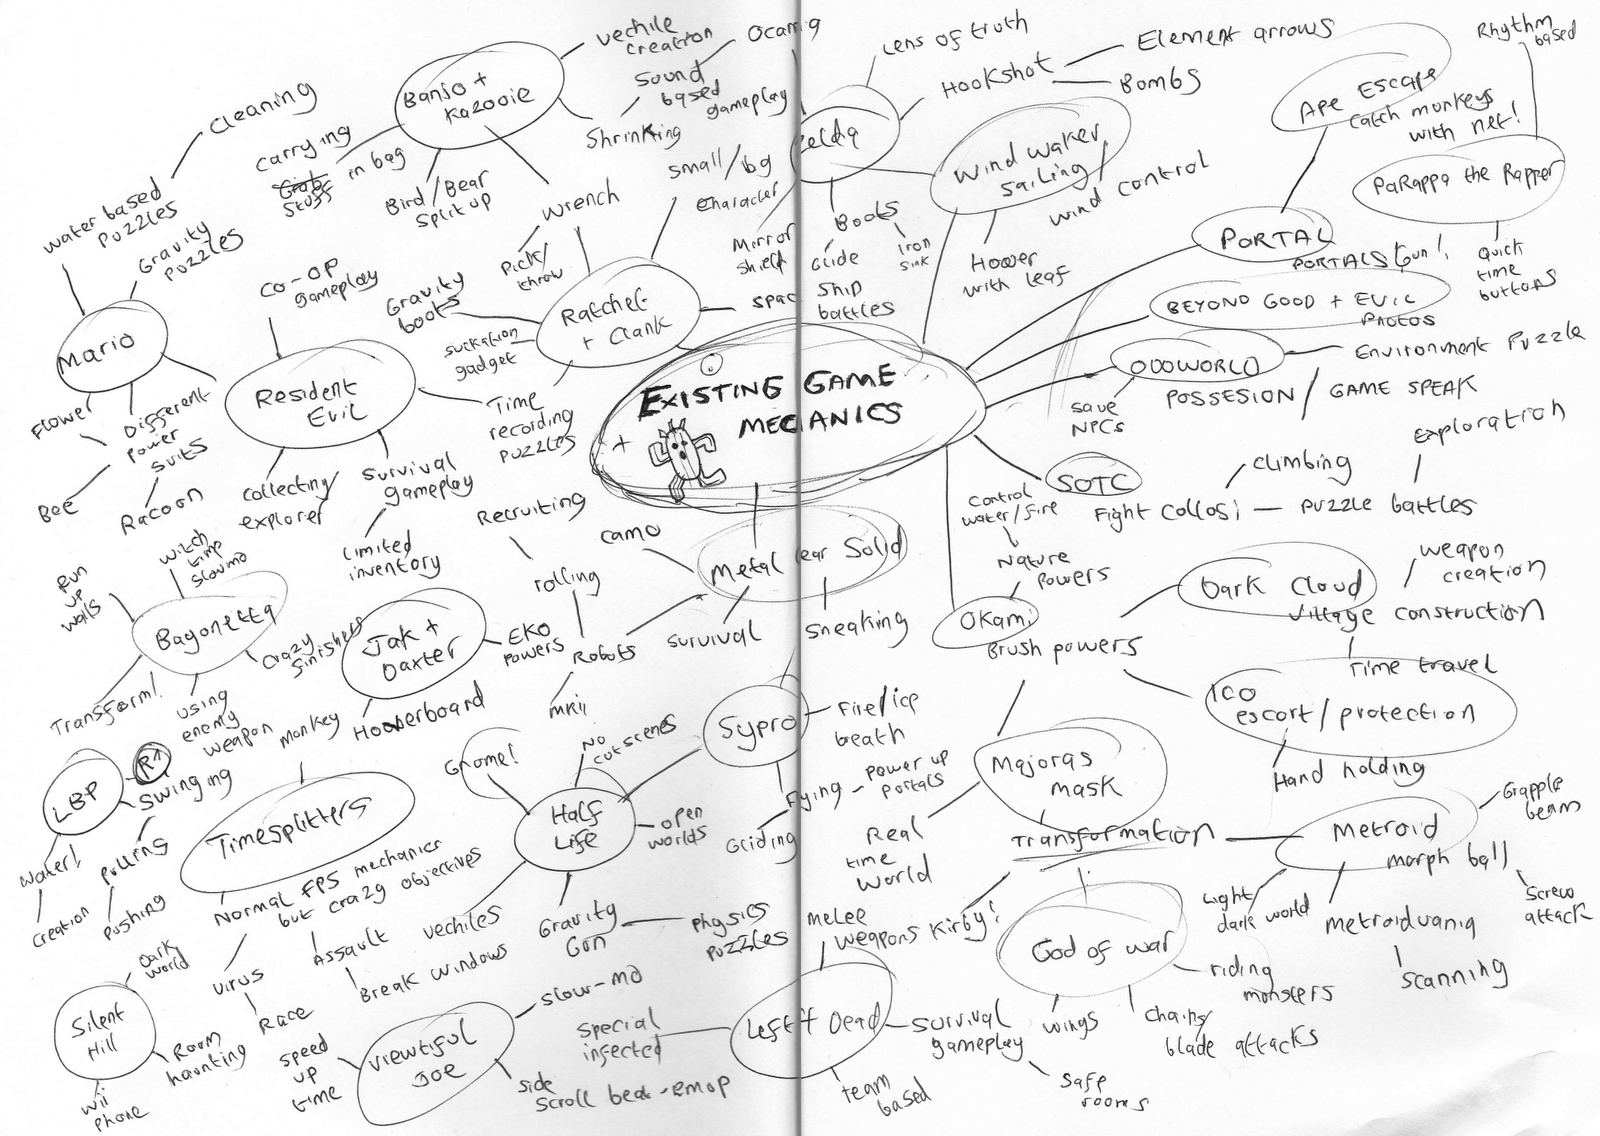 EXISTING GAME
MECHANICS
Banjo +
Kazooie
vechile
creation
Sound
based
gameplay
Shrinking
carrying
stuff
in bag
Bird/Bear
split up
wrench
Pick/
throw
cleaning
water based
puzzles
Gravity
puzzles
Mario
Flower
Bee
Different
power
suits
Racoon
Co-op
gameplay
Resident
Evil
collecting/
explorer
survival
gameplay
Limited
inventory
Ratchet
+ Clank
small/big
character
Gravity
boots
suckation
gadget
Time
recording
puzzles
Zelda
Lens of truth
Hookshot
Element arrows
Bombs
Mirror
shield
Boots
Glide
Iron
sink
Ship
battles
Wind waker
sailing/
wind control
Hover
with leaf
Ape Escape
catch monkeys
with net!
Rhythm
based
PaRappa the Rapper
Quick
time
buttons
PORTAL
PORTALS Gun!
BEYOND GOOD + EVIL
PHOTOS
ODDWORLD
Environment Puzzle
save
NPCs
POSSESION / GAME SPEAK
SOTC
Fight collosi
climbing
puzzle battles
Exploration
Control
water/fire
Nature
powers
Okami
Brush powers
Dark Cloud
weapon
creation
village construction
Time travel
ICO
escort/protection
Hand holding
Majoras
mask
Real
time
world
Transformation
Kirby!
Metroid
morph ball
Grapple
beam
Screw
attack
Light
dark world
metroidvania
scanning
God of war
riding
monsters
wings
chains/
blade attacks
camo
Metal Gear Solid
Recruiting
rolling
Robots
mkii
survival
sneaking
Sypro
Fire/ice
breath
flying
power up
portals
Gliding
Bayonetta
witch
time
slowmo
Run
up
walls
crazy
finishers
Transform!
using
enemy
weapon
Jak +
Daxter
EKO
powers
Hooverboard
LBP
R1
swinging
pulling
pushing
water!
creation
monkey
Timesplitters
Normal FPS mechanics
but crazy objectives
virus
Race
Assault
Break windows
Gnome!
No
cut scenes
Half
Life
open
worlds
vechiles
Gravity
Gun
physics
puzzles
Silent
Hill
Dark
world
Room
haunting
wii
phone
viewtiful
Joe
slow-mo
speed
up
time
side
scroll
Left 4 Dead
melee
weapons
special
infected
survival
gameplay
safe
rooms
team
based